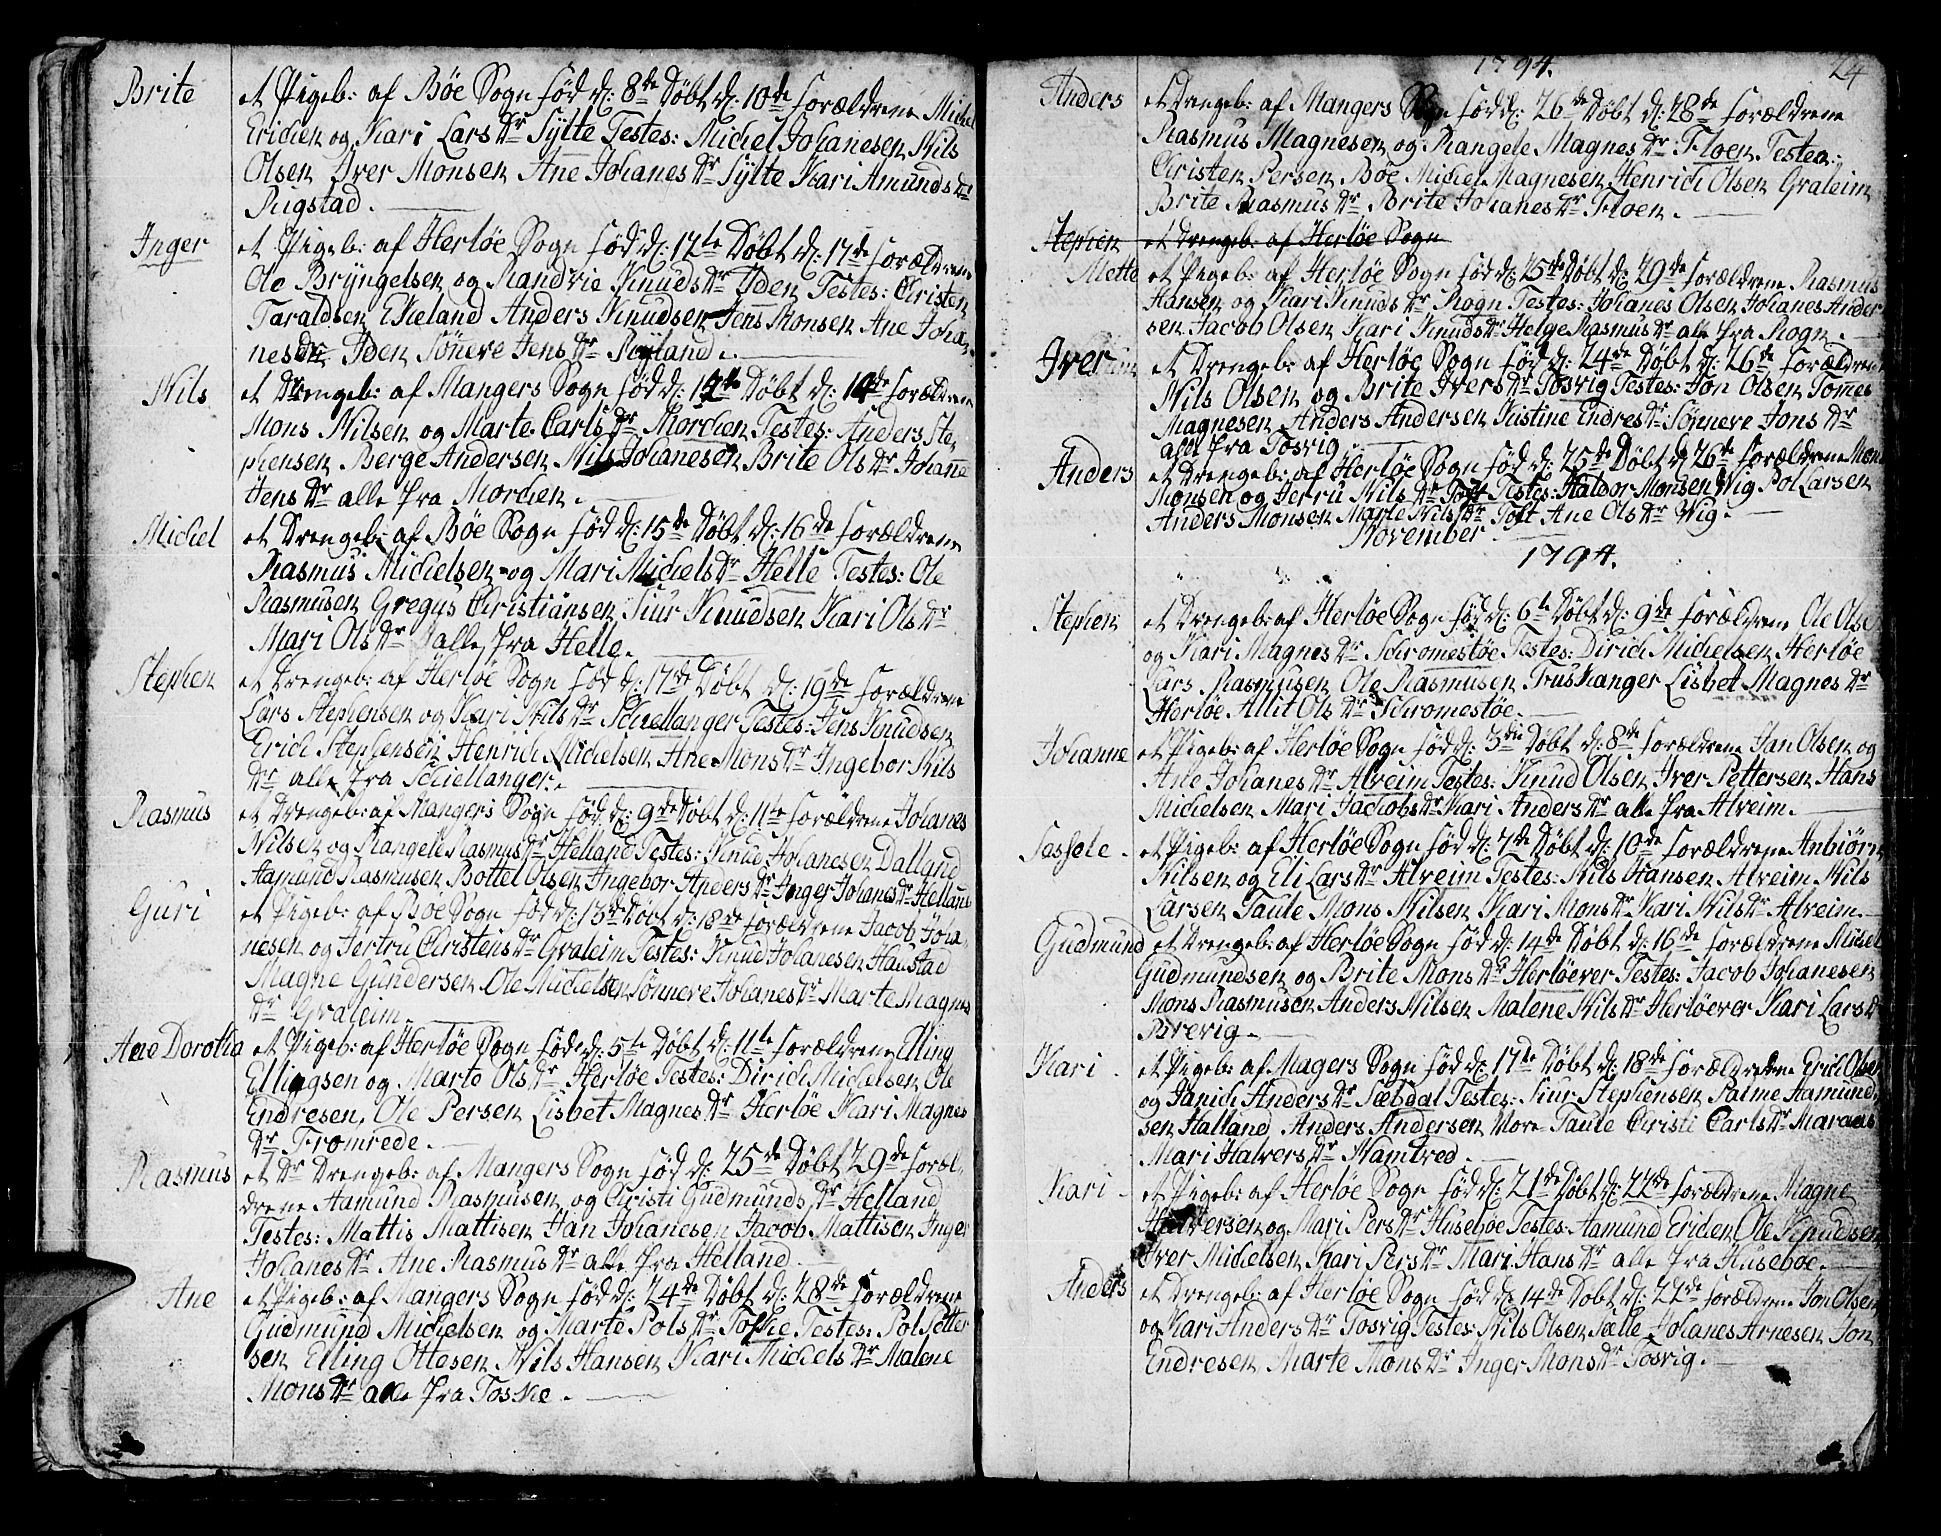 Brite et Pigeb: af Böe Sogn föd d: 8de Döbt d: 10de forældrene Michel
Erichen og Kari Lars Dr Sylte Testes: Michel Johanesen Nils
Olsen Iver Monsen Ane Johanes Dr Sylte Kari Amunds Dr
Rigstad.
Inger et Pigeb: af Herlöe Sogn föd d: 12te Döbt d: 17de forældrene
Ole Bryngelsen og Randvie Knuds Dr Iden Testes: Christen
Taraldsen Ekeland Anders Knudsen Jens Monsen Ane Johan
nes Dr Iden Sönneve Jens Dr Ryland.
Nils et Drengeb: af Mangers Sogn föd d: 12te Döbt d: 14de forældrene
Mons Nilsen og Marte Carls Dr Morchen Testes: Anders Ste
phensen Berge Andersen Nils Johanesen Brite Ols Dr Johanne
Jens Dr alle fra Morchen.
Michel et Drengeb: af Böe Sogn föd d: 15de Döbt d: 16de forældrene
Rasmus Michelsen og Mari Michels Dr Helle Testes: Ole
Rasmusen Gregus Christiansen Siur Knudsen Kari Ols Dr
Mari Ols Dr alle fra Helle.
Stephen et Drengeb: af Herlöe Sogn föd d: 17de Döbt d: 19de forældrene
Lars Stephensen og Kari Nils Dr Schiellanger Testes: Jens Knudsen
Erich Stephensen Henrich Michelsen Ane Mons Dr Ingebor Nils
Dr alle fra Schiellanger.
Rasmus et Drengeb: af Mangers Sogn föd d: 9de Döbt d: 11te forældrene Johanes
Nilsen og Rangele Rasmus Dr Helland Testes: Knud Johanesen Dalland
Aamund Rasmusen Bottel Olsen Ingebor Anders Dr Inger Johanes Dr Helland
Guri et Pigeb: af Böe Sogn föd d: 13de Döbt d: 18de forældrene Jacob Joha
nesen og Jertru Christens Dr Graleim Testes: Knud Johanesen Haustad
Magne Gundersen Ole Michelsen Sönneve Johanes Dr Marte Magnes
Dr Graleim.
Ane Dorothea et Pigeb: af Herlöe Sogn föd d: 5te Döbt d: 11te forældrene Elling
Ellingsen og Marte Ols Dr Herlöe Testes: Dirich Michelsen Ole
Endresen, Ole Persen Lisbet Magnes Dr Herlöe Kari Magnes
Dr Fromrede.
Rasmus et Dr Drengeb: af Mangers Sogn föd d: 25de Döbt 29de foræl-
drene Aamund Rasmusen og Christi Gudmunds Dr Helland
Testes: Mattis Mattisen Jan Johanesen Jacob Mattisen Inger
Johanes Dr Ane Rasmus Dr alle fra Helland.
Ane et Pigeb: af Mangers Sogn föd d: 24de Döbt d: 28de forældrene
Gudmund Michelsen og Marte Pols Dr Toske Testes: Pol Petter
sen Elling Ottesen Nils Hansen Kari Michels Dr Malene
Mons Dr alle fra Toske.
1794. 24
Anders et Drengeb: af Mangers Sogn föd d: 26de Döbt d: 28de forældrene
Rasmus Magnesen og Rangele Magnes Dr Floen Testes:
Christen Persen Böe Michel Magnesen Henrich Olsen Graleim
Brite Rasmus Dr Brite Johanes Dr Floen.
Stephen et Drengeb: af Herlöe Sogn
Mette et Pigeb: af Herlöe Sogn föd d: 25de Döbt d: 29de forældrene Rasmus
Hansen og Kari Knuds Dr Rogn Testes: Johanes Olsen Johanes Ander
sen Jacob Olsen Kari Knuds Dr Helge Rasmus Dr alle fra Rogn.
Iver et Drengeb: af Herlöe Sogn föd d: 24de Döbt d: 26de forældrene
Nils Olsen og Brite Ivers Dr Tosvig Testes: Jon Olsen Tomes
Magnesen Anders Andersen Kistine Endres Dr Sönneve Jons Dr
alle fra Tosvig.
Anders et Drengeb: af Herlöe Sogn föd d: 25de Döbt d 26de forældrene Mons
Monsen og Jerru Nils Dr Toft Testes: Haldor Monsen Wig Pol Larsen
Anders Monsen Marte Nils Dr Toft Ane Ols Dr Wig.
November
1794.
Stephen et Drengeb: af Herlöe Sogn föd d: 6te Döbt d: 9de forældrene Ole Olsen
og Kari Magnes Dr Schromestöe Testes: Dirich Michelsen Herlöe
Lars Rasmusen Ole Rasmusen Truskanger Lisbet Magnes Dr
Herlöe Allit Ols Dr Schromestöe.
Johanne et Pigeb: af Herlöe Sogn föd d: 3die Döbt d: 8de forældrene Jan Olsen og
Ane Johanes Dr Alveim Testes: Knud Olsen Iver Pettersen Hans
Michelsen Mari Jachobs Dr Kari Anders Dr alle fra Alveim.
Sessele et Pigeb: af Herlöe Sogn föd d: 7de Döbt d: 10de forældrene Anbiörn
Nilsen og Eli Lars Dr Alveim Testes: Nils Hansen Alveim Nils
Larsen Taule Mons Nilsen Kari Mons Dr Kari Nils Dr Alveim.
Gudmund et Drengeb: af Herlöe Sogn föd d: 14de Döbt d: 16de forældrene Mickel
Gudmundsen og Brite Mons Dr Herlöever Testes: Jacob Johanesen
Mons Rasmusen Anders Nilsen Malene Nils Dr Herlöever Kari Lars Dr
Brevig.
Kari et Pigeb: af Magers Sogn föd d: 17de Döbt d: 18de forældrene Erich Olsen
og Janich Anders Dr Sæbdal Testes: Siur Stephensen Palme Aamund
sen Halland Anders Andersen Nore Taule Christi Carls Dr Maraas
Mari Halvers Dr Namtved.
Kari et Pigeb: af Herlöe Sogn föd d: 21de Döbt d: 22de forældrene Magne
Halversen og Mari Pers Dr Huseböe Testes: Aamund Erichen Ole Knudsen
Iver Michelsen Kari Pers Dr Mari Hans Dr alle fra Huseböe.
Anders et Drengeb: af Herlöe Sogn föd d: 14de Döbt d: 22de forældrene Jon Olsen
og Kari Anders Dr Tosvig Testes: Nils Olsen Sælle Johanes Arnesen Jon
Endresen Marte Mons Dr Inger Mons Dr Tosvig.